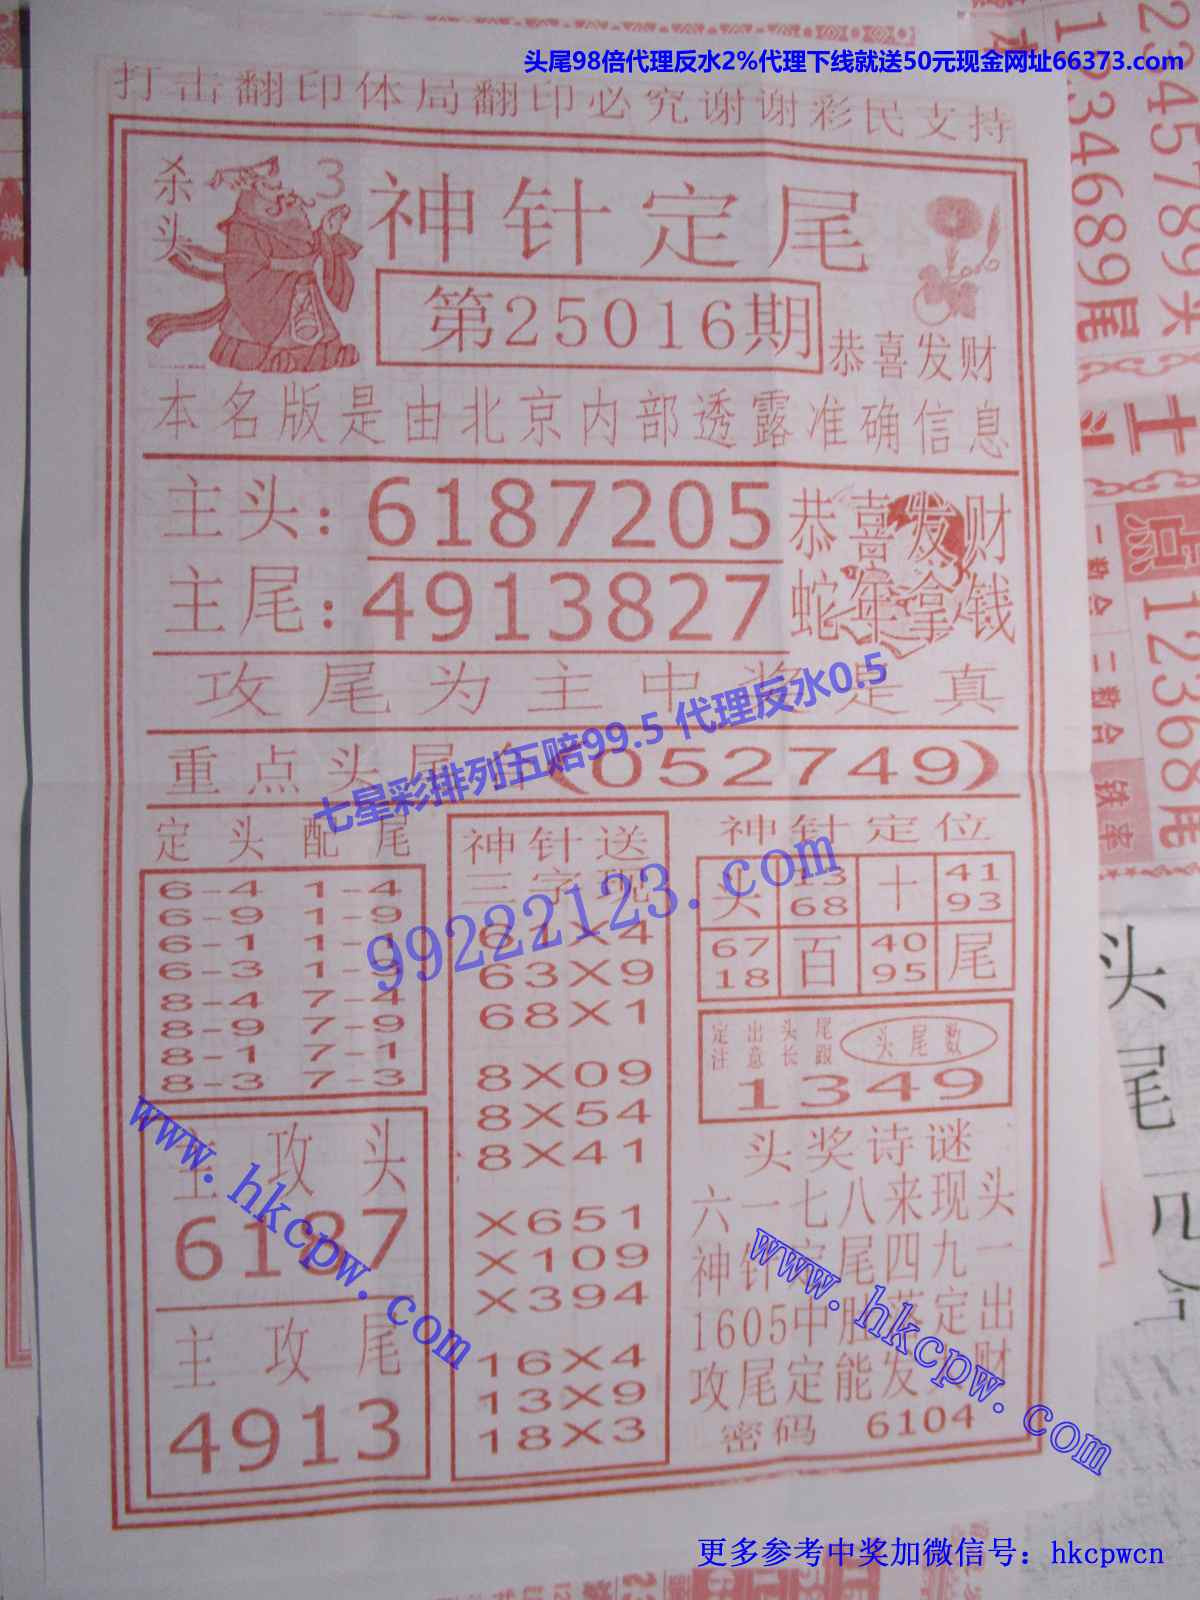 头尾98倍代理反水2%代理下线就送50元现金网址66373.com
打击翻印体局翻印必究谢谢彩民支持
杀头 3
神针定尾
第25016期
恭喜发财
本名版是由北京内部透露准确信息
主头:6187205
恭喜发财
主尾:4913827
蛇年拿钱
攻尾为主中奖是真
七星彩排列五赔99.5 代理反水0.5
重点头尾 (052749)
定头配尾
6-4 1-4
6-9 1-9
6-1 1-1
6-3 1-3
8-4 7-4
8-9 7-9
8-1 7-1
8-3 7-3
主攻头
6187
主攻尾
4913
神针送
三字现
61X4
63X9
68X1
8X09
8X54
8X41
X651
X109
X394
16X4
13X9
18X3
99222123.com
神针定位
头 13 68 十 41 93
67 18 百 40 95 尾
定出头尾
注意长跟
头尾数
1349
头奖诗谜
六一七八来现头
神针定尾四九一
1605中肚落定出
攻尾定能发大财
密码 6104
www.hkcpw.com
www.hkcpw.com
更多参考中奖加微信号：hkcpwcn
234578头
1234689尾
点
12368尾
一数合二数合
铁率
头尾